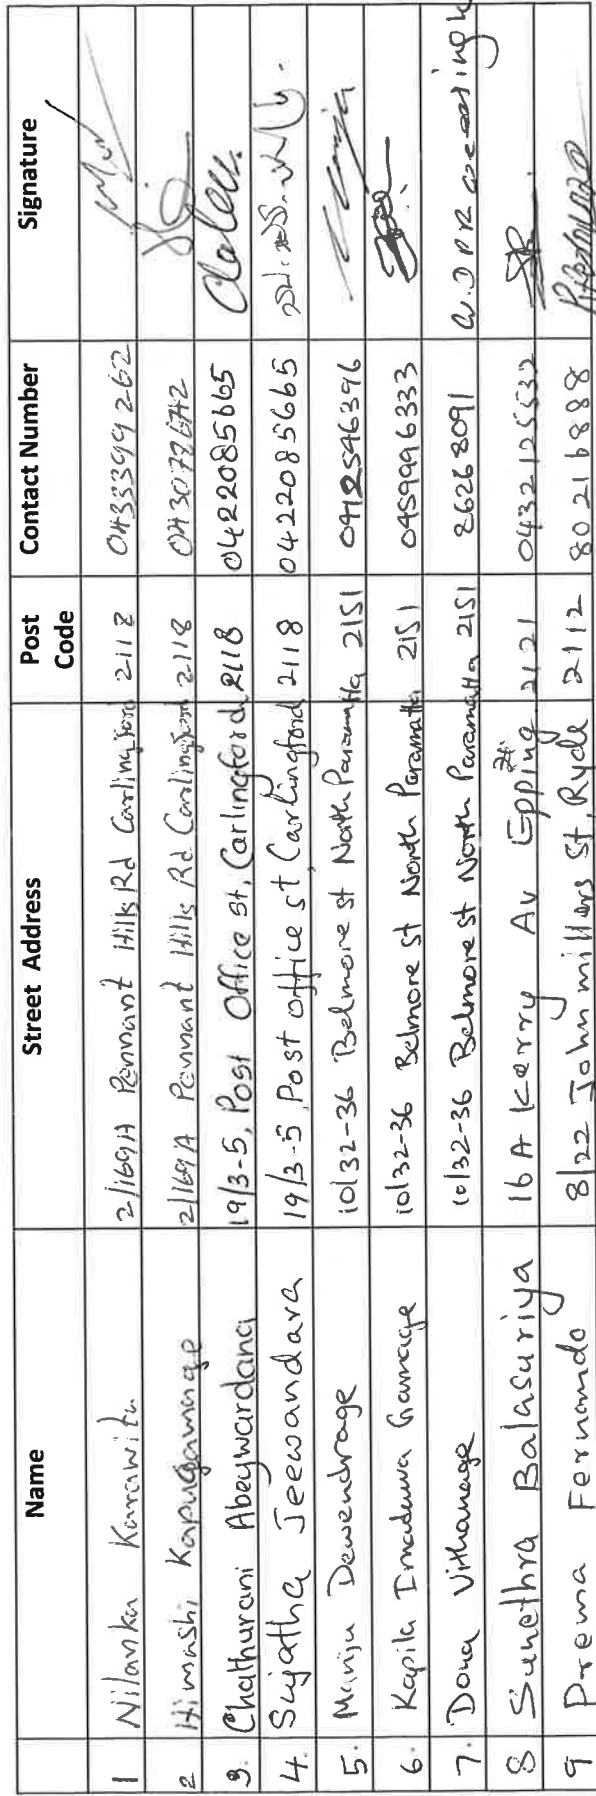 Name Street Address Post Code Contact Number Signature
1 Nilanka Karawita 2/169A Pennant Hills Rd Carlingford 2118 0433399262
2 Himashi Kapugamage 2/169A Pennant Hills Rd Carlingford 2118
3. Chathurani Abeywardana 19/3-5, Post Office St, Carlingford, 2118 0422085665
4. Sujatha Jeewandara 19/3-5, Post office st, Carlingford 2118 0422085665
5. Manju Dewendrage 10/32-36 Belmore st North Paramatta 2151 0412546396
6. Kapila Imaduwa Gamage 10/32-36 Belmore st North Paramatta 2151 0459996333
7. Dona Vithanage 10/32-36 Belmore st North Paramatta 2151 86268091
8 Sunethra Balasuriya 16A Kerry Av Epping 2121 0432125532
9 Prema Fernando 8/22 John millers St, Ryde 2112 80216888